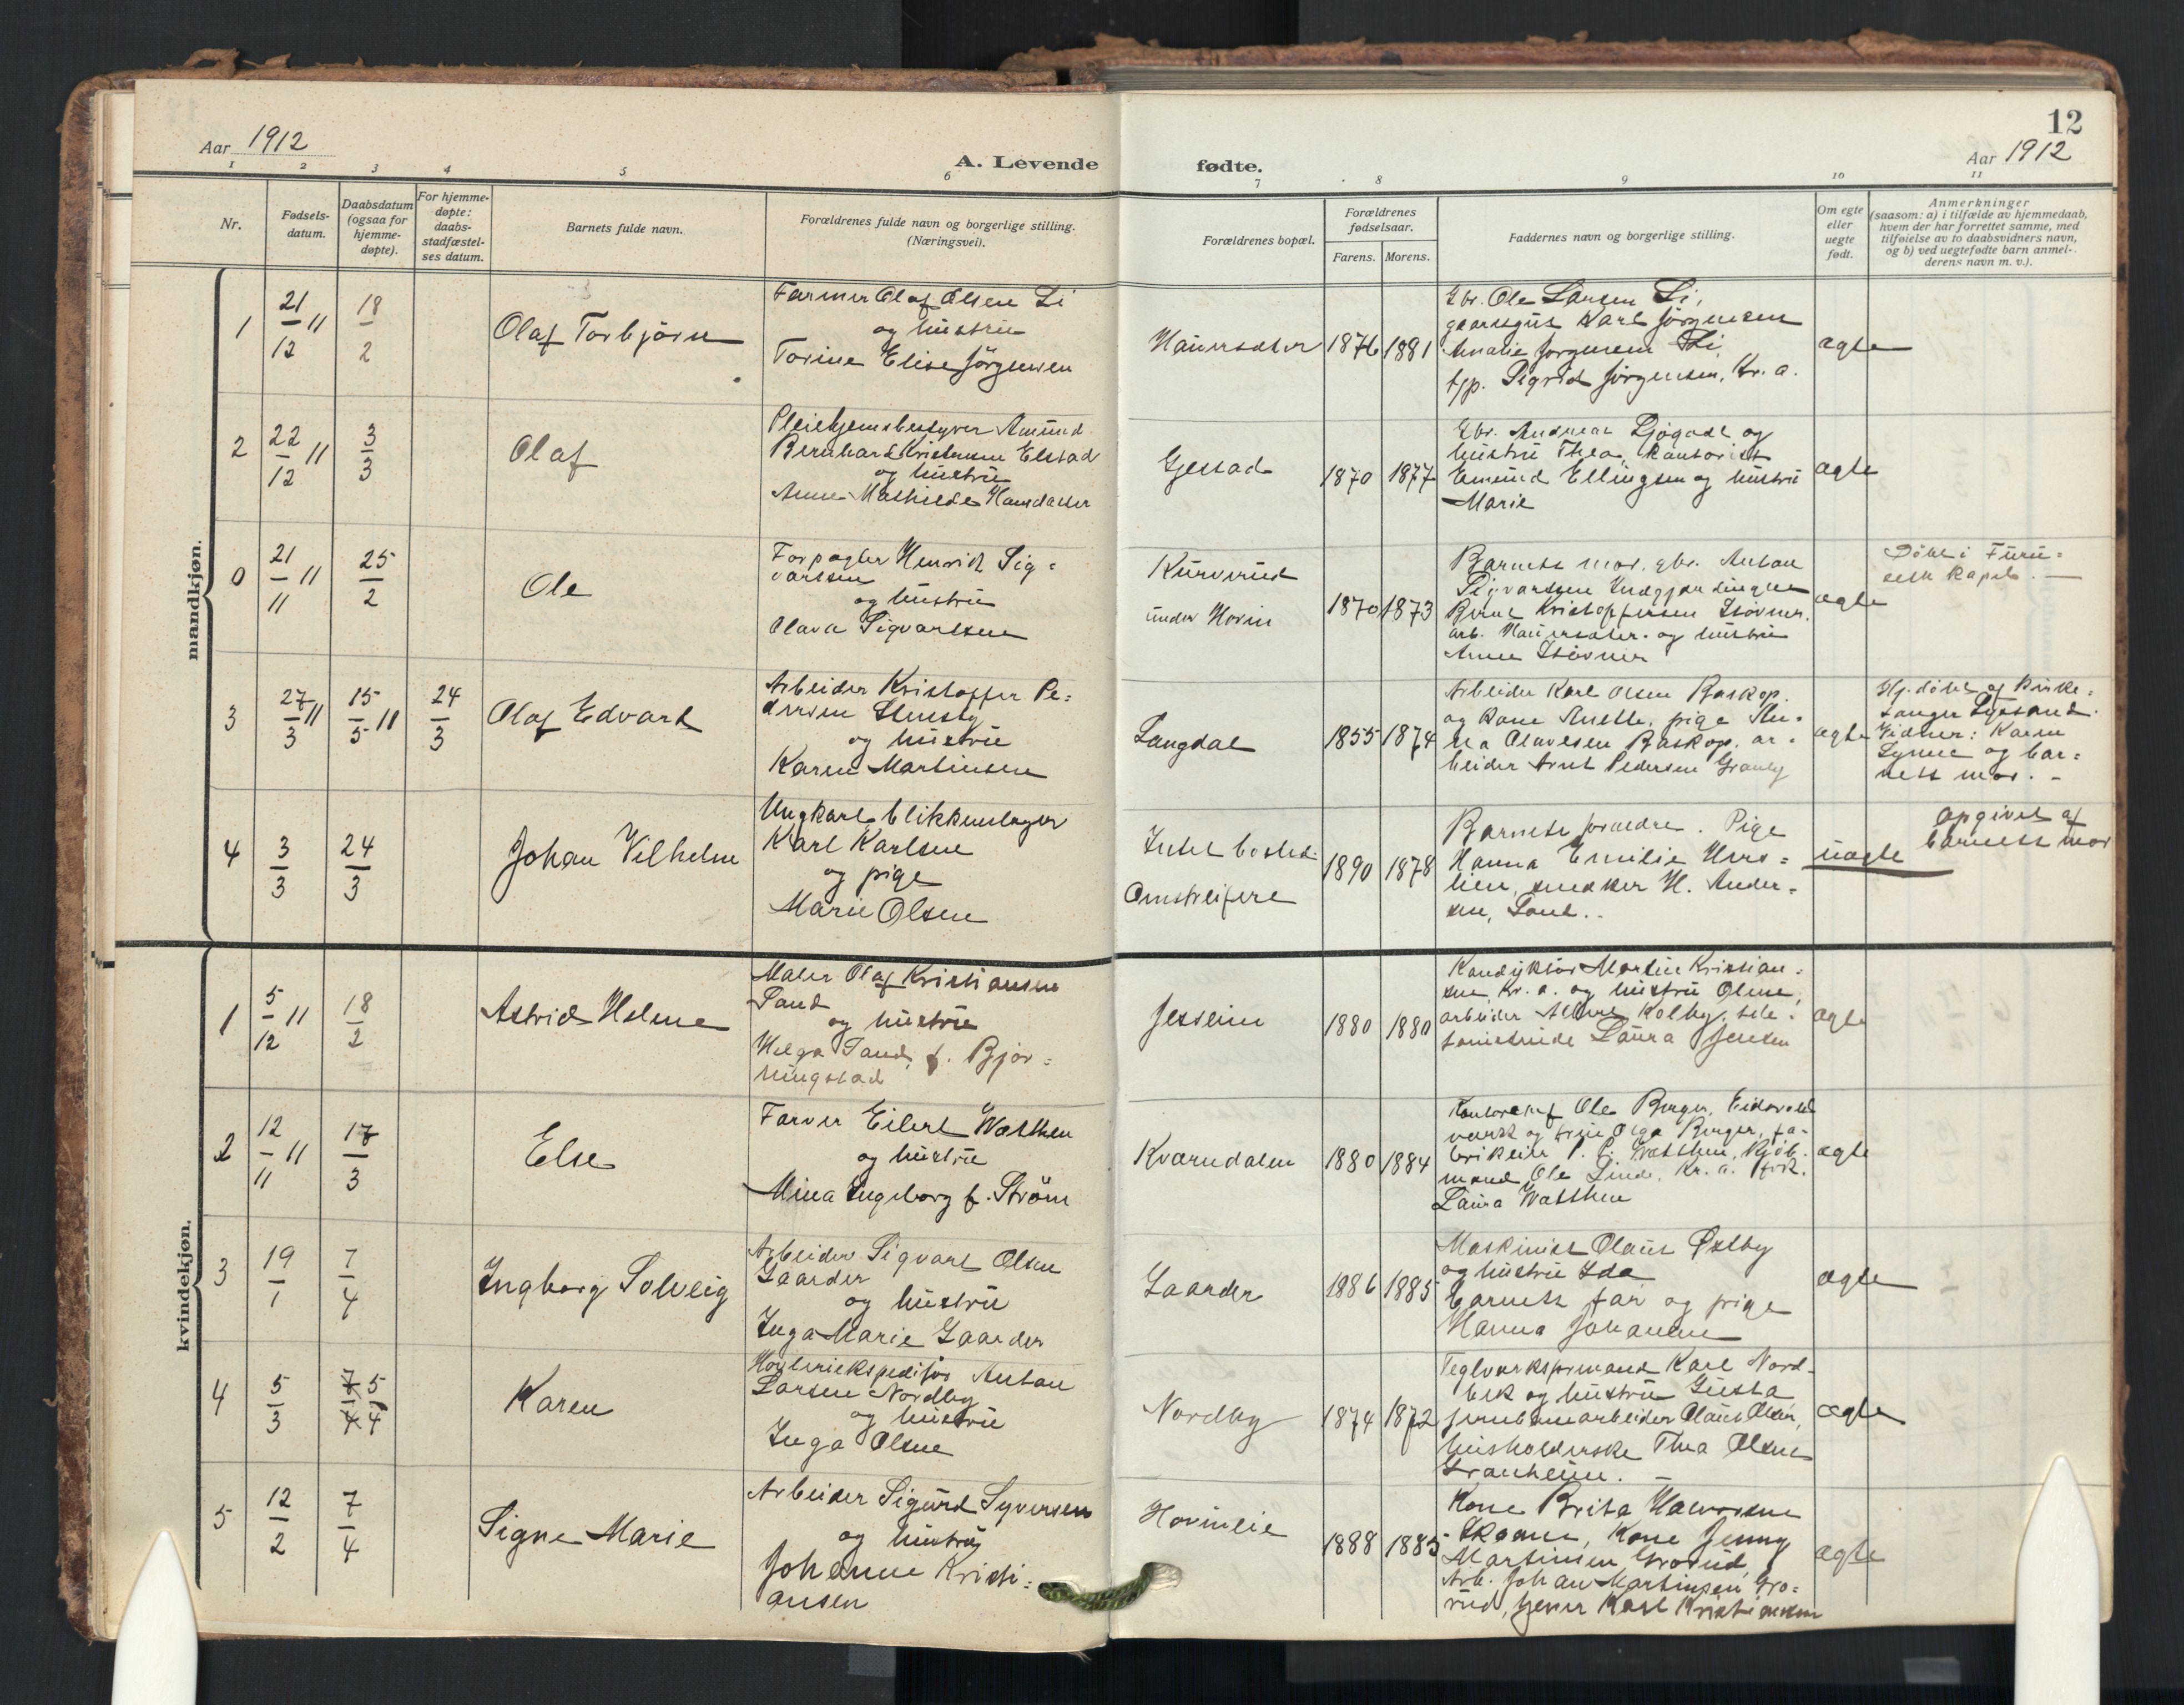 12
Aar 1912
A. Levende
fødte.
Aar 1912
1 2 3 4 5 6
7 8 9 10 11
Nr.
Fødsels-
datum.
Daabsdatum
(ogsaa for
hjemme-
døpte).
For hjemme-
døpte:
daabs-
stadfæstel-
ses datum.
Barnets fulde navn.
Forældrenes fulde navn og borgerlige stilling.
(Næringsvei).
Forældrenes bopæl.
Forældrenes
fødselsaar.
Farens. Morens.
Faddernes navn og borgerlige stilling.
Om egte
eller
uegte
født.
Anmerkninger
(saasom: a) i tilfælde av hjemmedaab,
hvem der har forrettet samme, med
tilføielse av to daabsvidners navn,
og b) ved uegtefødte barn anmel-
derens navn m. v.).
mandkjøn.
1
21/12 11
18/2
Olaf Torbjörn
Farmer Olaf Olsen Li
og hustru
Torine Elise Jörgensen
Hauersæter
1876 1881
Gbr. Ole Larsen Li,
gaardsgut Karl Jörgensen
Amalie Jorgensen Li,
tjp. Sigrid Jörgensen, Kr. a.
ægte
2
22/12 11
3/3
Olaf
Pleiehjemsbestyrer Amund
Bernhard Kristensen Elstad
og hustru
Anne Mathilde Hansdatter
Gjestad
1870 1877
Gbr. Andreas Ljögodt og
hustru Thea, kantorist
Emund Ellingsen og hustru
Marie
ægte
0
21/11 11
25/2
Ole
Forpagter Henrik Sig=
vartsen
og hustru
Olava Sigvartsen
Kurverud
under Hovin
1870 1873
Barnets mor, gbr. Anton
Sigvartsen
Bernt Kristoffersen Isövner.
arb. Hauersæter. og hustru
Anne Isövner
ægte
Döbt i Furu=
seth kapel. —
3
27/3 11
15/5 11
24/3
Olaf Edvard
Arbeider Kristoffer Pe=
dersen Stensby
og hustru
Karen Martinsen
Langdal
1855 1874
Arbeider Karl Olsen Baskop.
og kone Anette, pige An=
na Olavesen Baskop. ar=
beider Arnt Pedersen Granly
ægte
Hj. döbt af kirke=
sanger Lyssand.
Vidner: Karen
Lynne og bar=
nets mor. -
4
3/3
24/3
Johan Vilhelm
Ungkarl, blikkenslager
Karl Karlsen
og pige
Marie Olsen
Intet bosted.
Omstreifere
1890 1878
Barnets forældre. Pige
Hanna Emilie Hers=
lien, snedker H. Ander=
sen, Sand..
uægte
Opgivet af
barnets mor
kvindekjøn.
1
5/12 11
18/2
Astrid Helene
Maler Olaf Kristiansen
Sand
og hustru
Helga Sand, f. Björ=
ningstad
Jesseim
1880 1880
Konduktör Martin Kristian=
sen, Kr. a. og hustru Oline,
arbeider Albert Kolby, tele=
fonistinde Laura Jensen
ægte
2
12/11 11
17/3
Else
Farver Eilert Watthen
og hustru
Mina Ingeborg f. Ström
Kværndalen
1880 1884
Kontorchef Ole Berger, Eidsvold
værk og frue Olga Berger, fa-
brikeier P. P. Watthen, Kjöb.
mand Ole Linde, Kr. a. frk.
Laura Watthen
ægte
3
19/1
7/4
Ingborg Solveig
Arbeider Sigvart Olsen
Gaarder
og hustru
Inga Marie Gaarder
Gaarder
1886 1885
Maskinist Olaus Østby
og hustru Ida
barnets far og pige
Hanna Johansen
ægte
4
5/3
7/4 5/4
Karen
Anton
Larsen Nordby
og hustru
Inga Olsen
Nordby
1874 1872
Teglværksformand Karl Nord-
bek og hustru Gusta
jernbanearbeider Olaus Olsen,
husholderske Thea Olsen
Granheim. —
ægte
5
12/2
7/4
Signe Marie
Arbeider Sigurd Syversen
og hustru
Johanne Kristi=
ansen
Hovineie
1888 1885
Kone Brita Halvorsen
Kone Jenny
Martinsen Grorud,
Arb. Johan Martinsen Gro=
rud, Karl Kristiansen
ægte